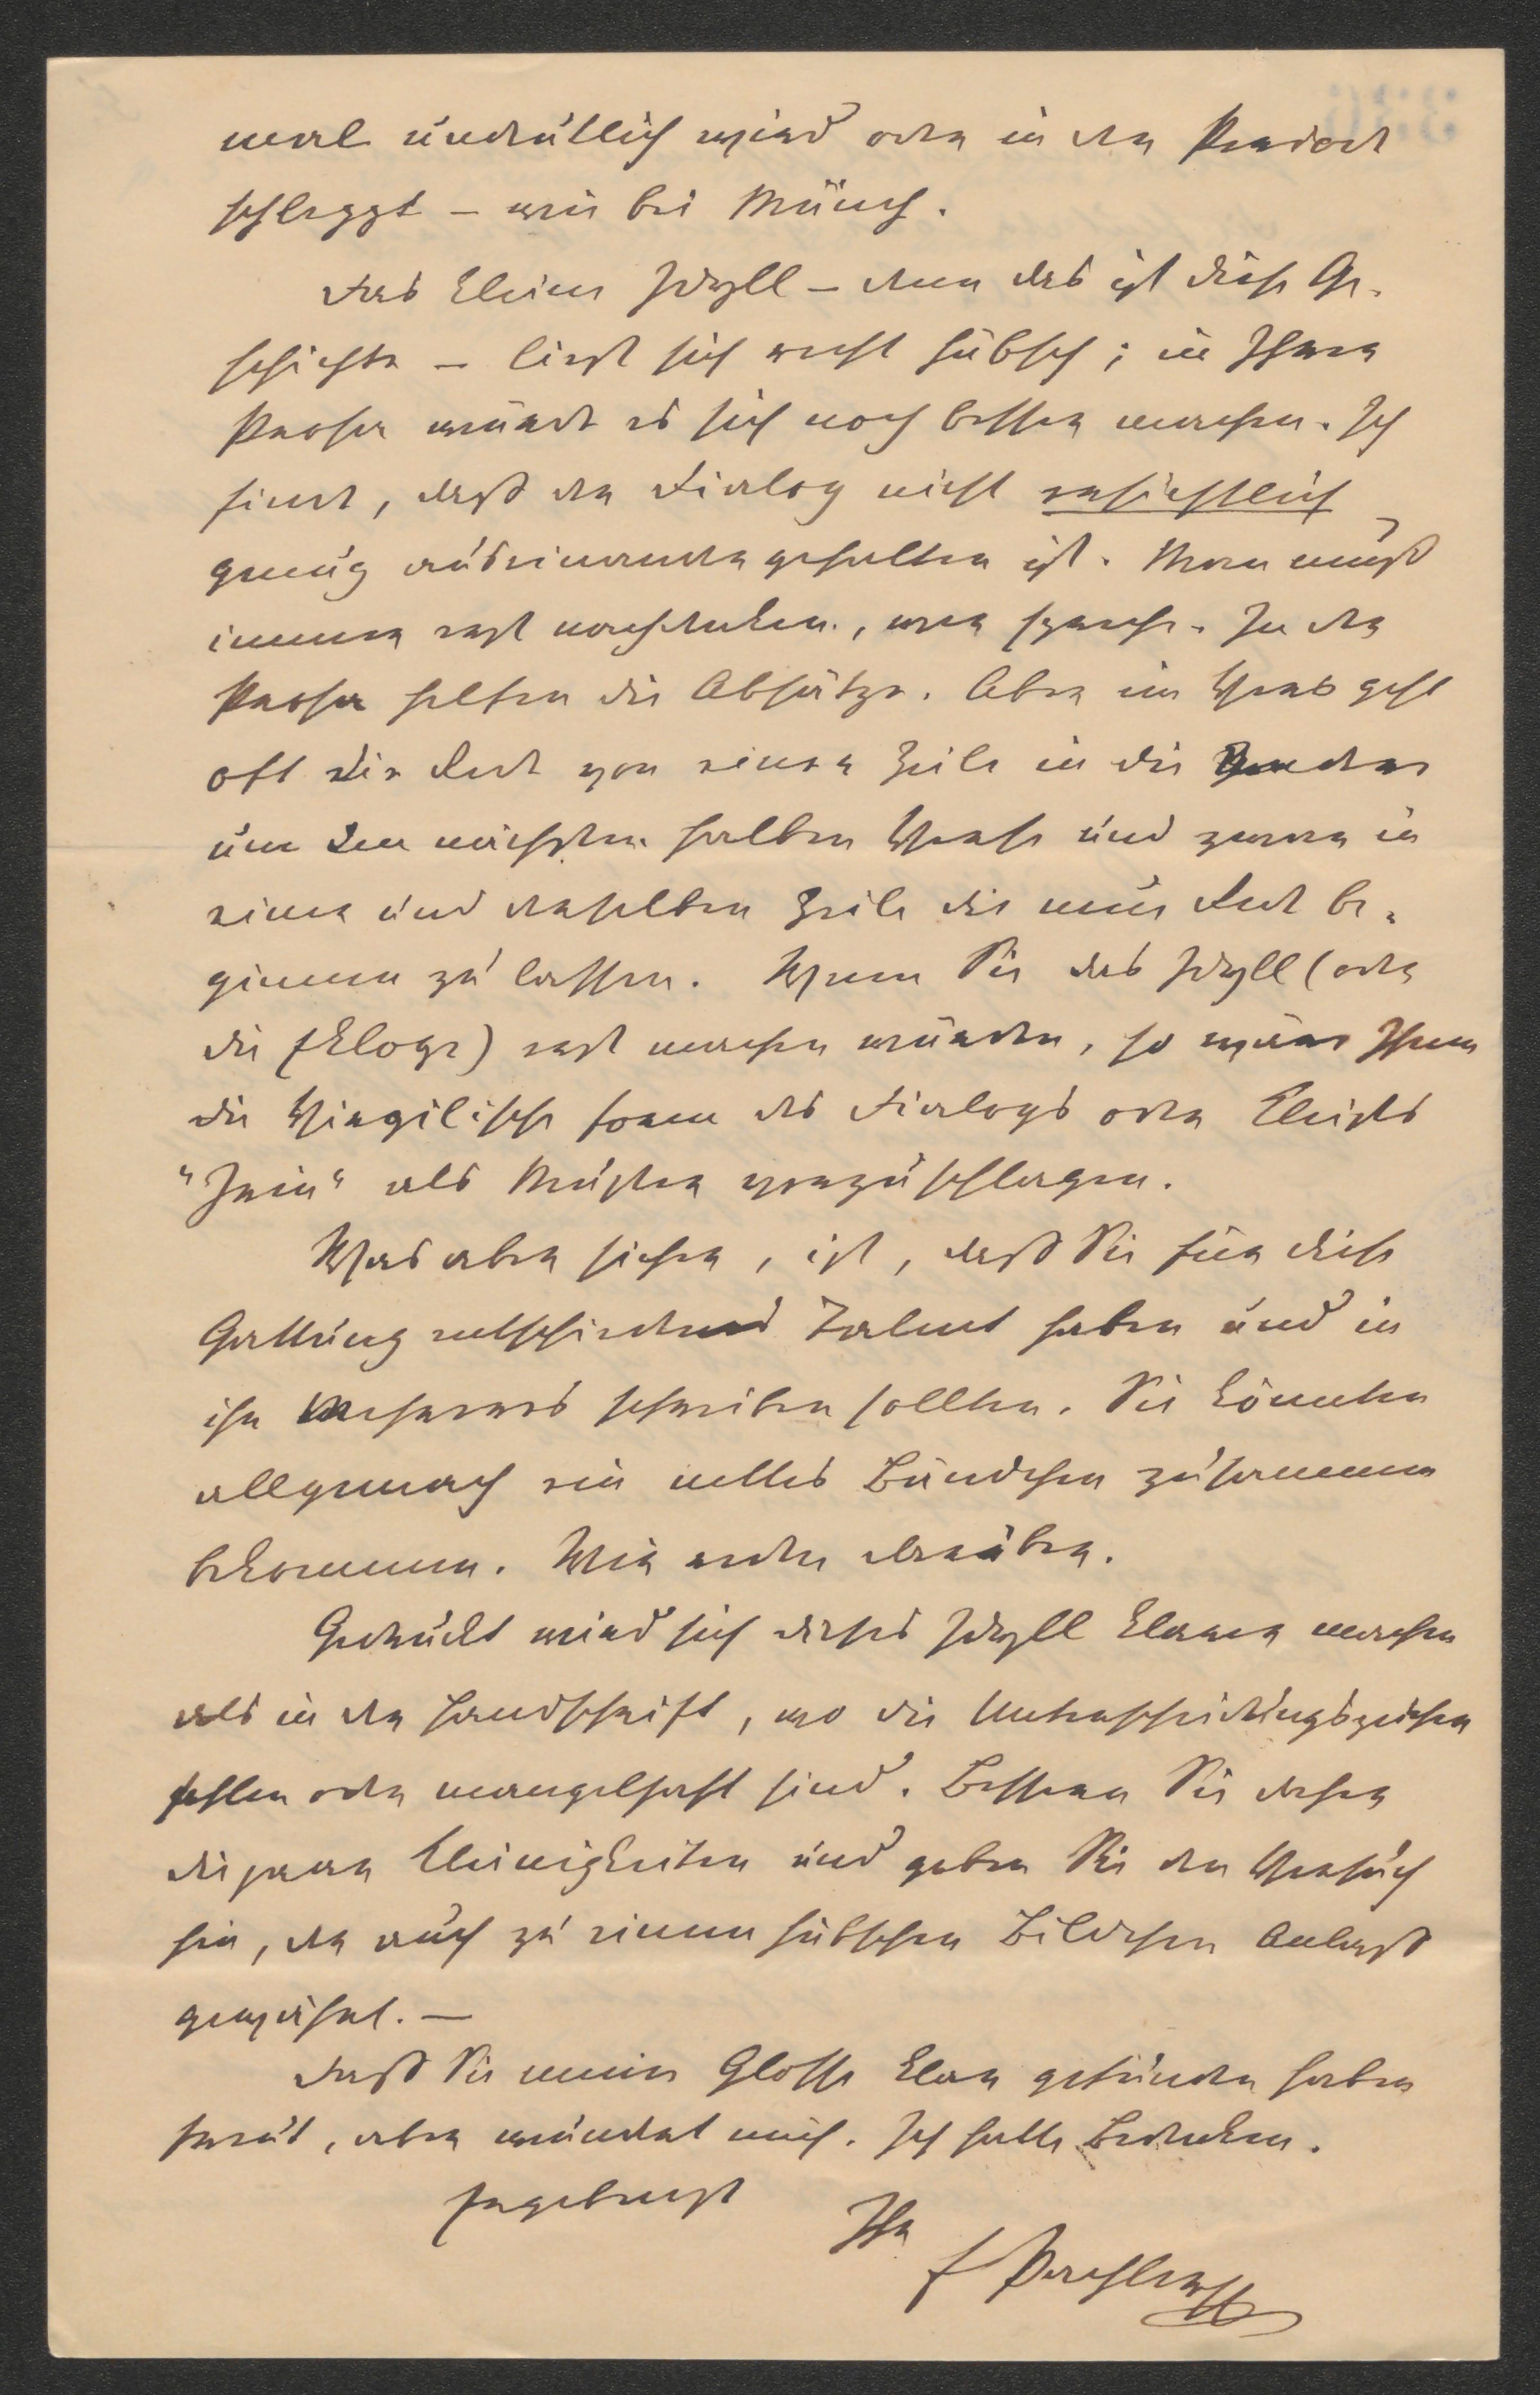 mal undeutlich wird oder in der Periode
schleppt – wie bei Münch.
Das kleine Idyll – denn das ist diese Ge-
schichte – liest sich recht hübsch; in Ihrer
Prosa würde es sich noch besser machen. Ich
finde, daß der Dialog nicht ersichtlich
genug auseinandergehalten ist. Man muß
immer erst nachdenken, wer spricht. In der
Prosa helfen die Absätze. Aber im Vers geht
oft die Rede von einer Zeile in die andere
um den nächsten halben Verse und zwar in
einer und derselben Zeile die neue Rede be-
ginnen zu lassen. Wenn Sie das Idyll (oder
die Ekloge) erst machen würden, so wäre Ihnen
die Virgilische Form des Dialogs oder Kleists
"Irin" als Muster vorzuschlagen.
Was aber sicher, ist, daß Sie für diese
Gattung entschieden Talent haben und in
ihr Mehreres schreiben sollten. Sie könnten
allgemach ein nettes Bändchen zusammen
bekommen. Wir reden darüber.
Gedruckt wird sich dieses Idyll klarer machen
als in der Handschrift, wo die Unterscheidungszeichen
fehlen oder mangelhaft sind. Bessern Sie daher
die paar Kleinigkeiten und geben Sie den Versuch
hin, der auch zu einem hübschen Bildchen Anlaß
gewährt. —
Daß Sie meine Glosse klar gefunden haben
freut, aber wundert mich. Ich hatte Bedenken.
Ergebenst Ihr
F Pachler